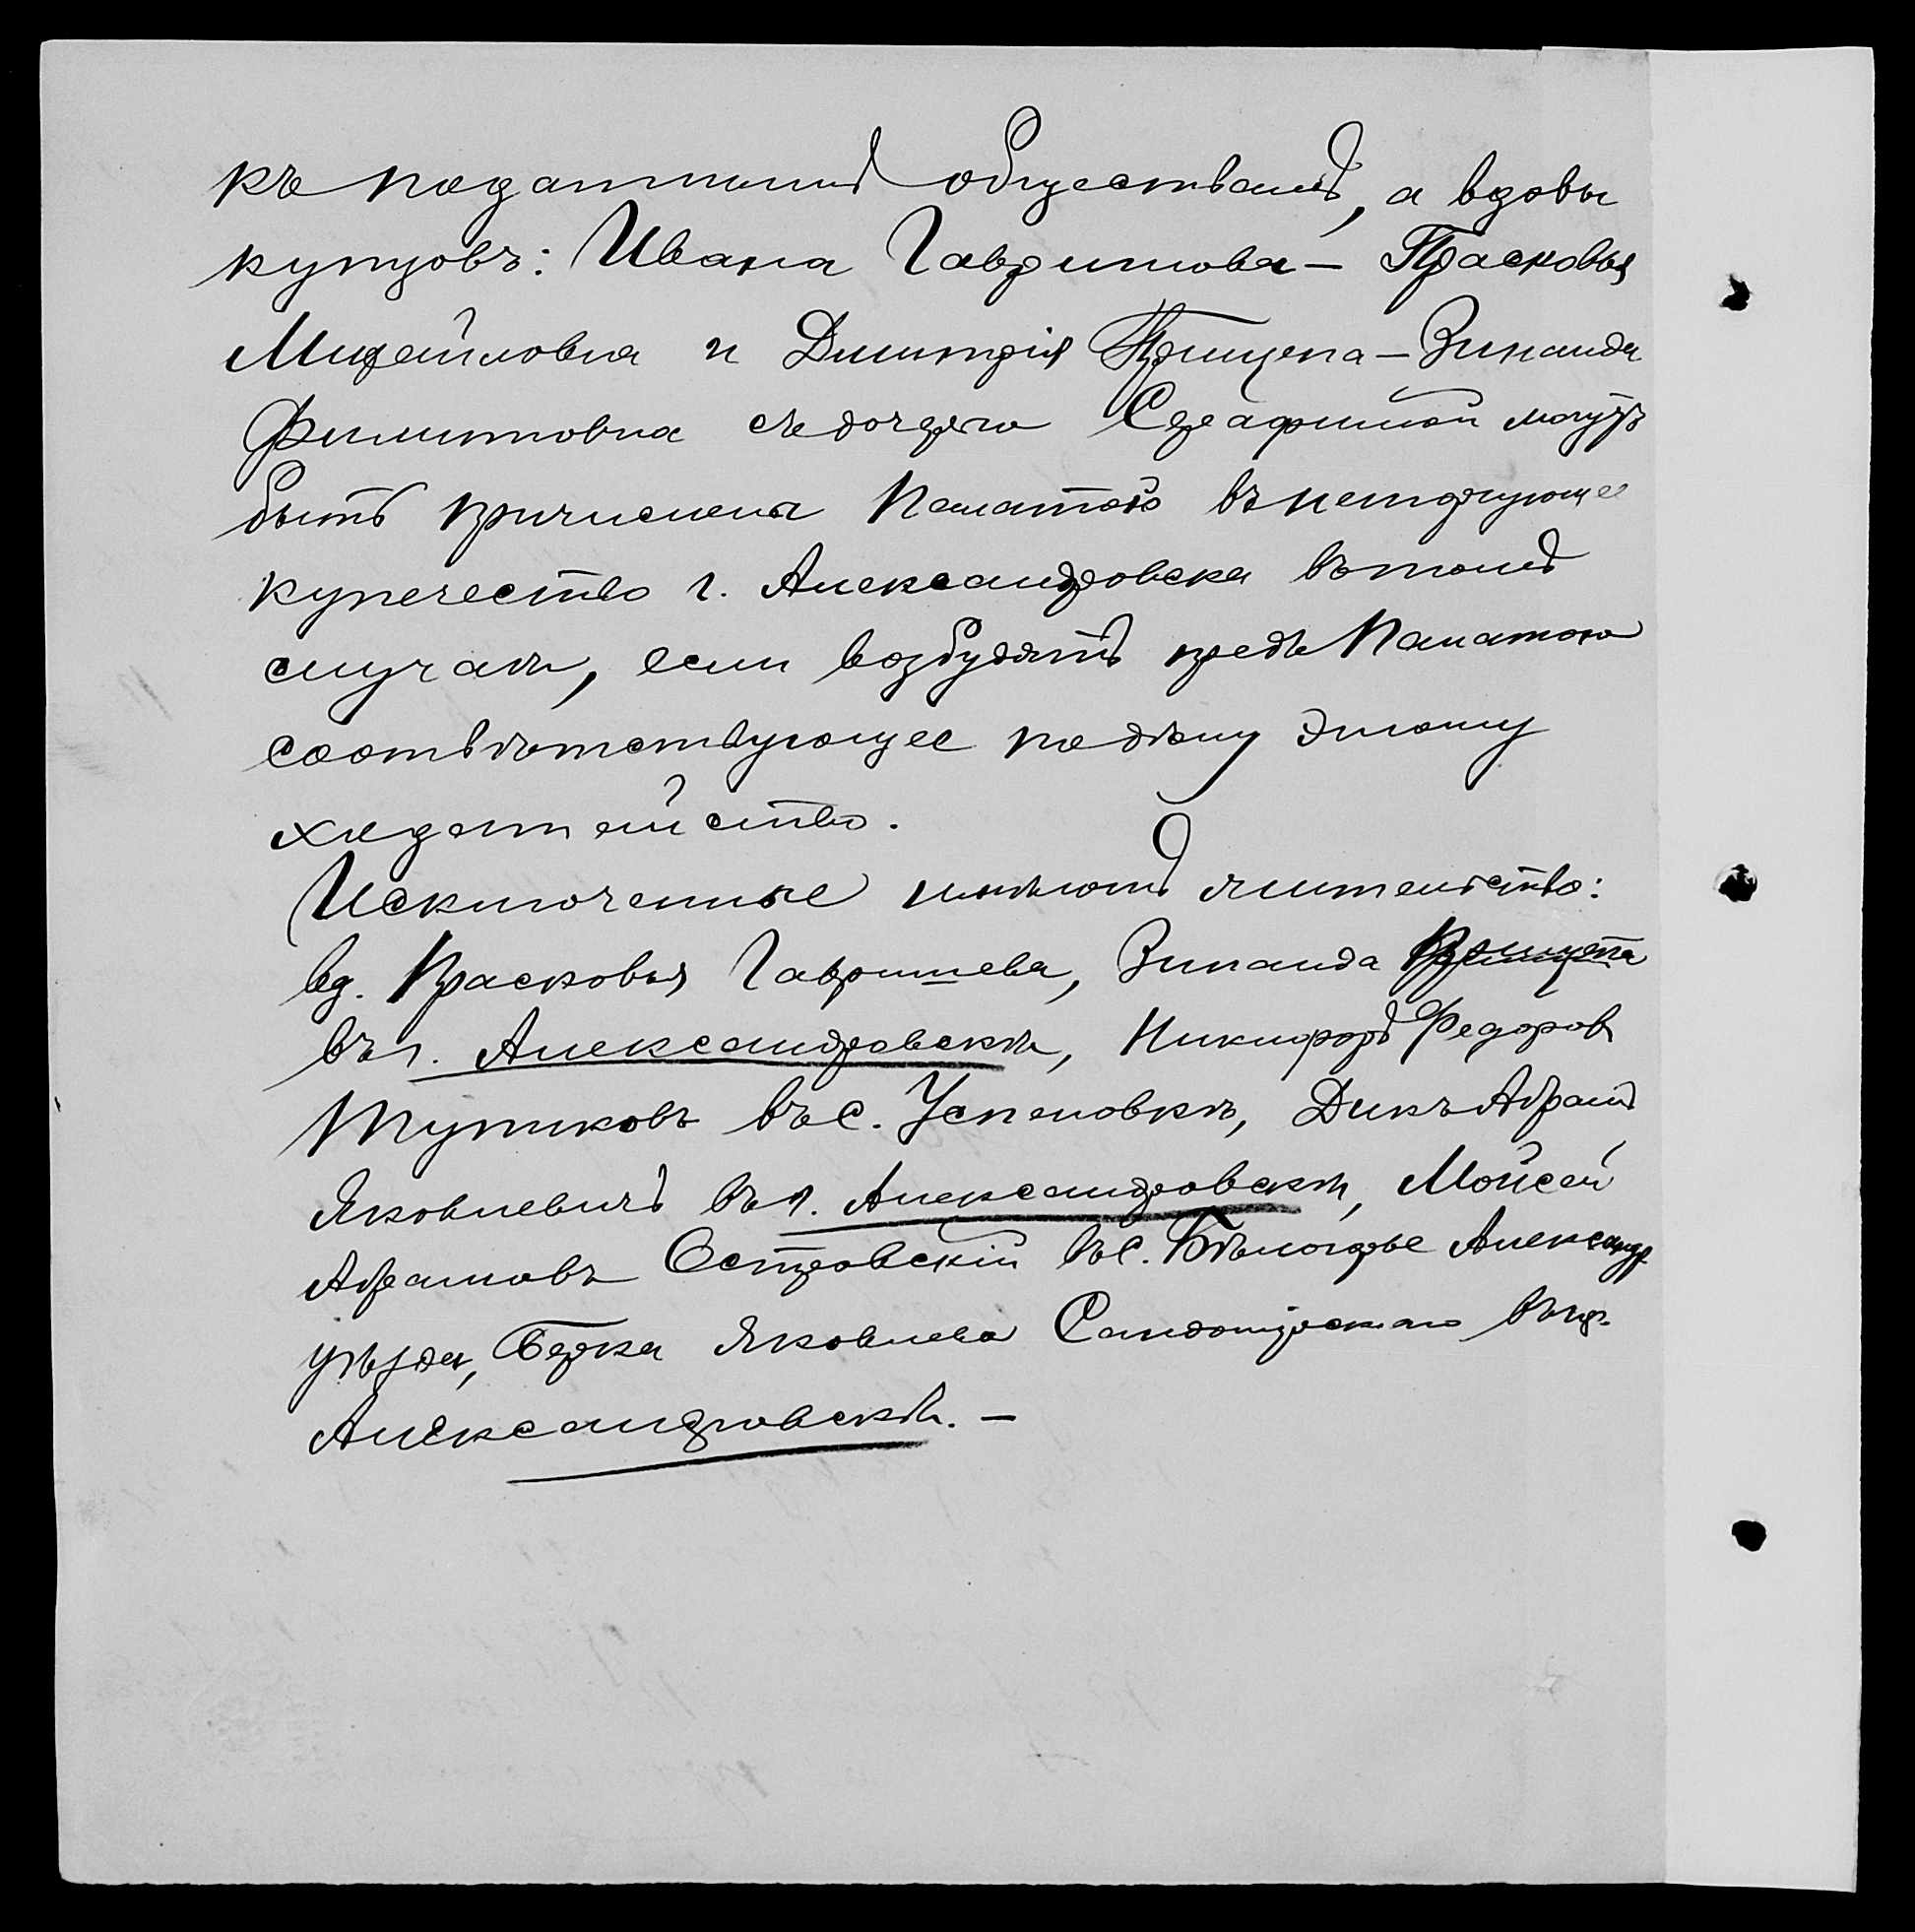 къ податнымъ обществамъ, а вдовы
купцовъ: Ивана Гавришова — Прасковья
Михайловна и Дмитрія Прищепа — Зинаида
Филиповна съ дочерью Серафимой могутъ
быть причислена Палатою въ неторгующее
купечество г. Александровска въ томъ
случаѣ, если возбудятъ предъ Палатою
соотвѣтствующее по дѣлу этому
ходатайство.
Исключенные имѣютъ жительство:
вд. Прасковья Гавришева, Зинаида Прищепа
въ г. Александровскѣ, Никифоръ Федоровъ
Тупиковъ въ с. Успеновкѣ, Дикъ Абрамъ
Яковлевичъ въ г. Александровскѣ, Мойсей
Абрамовъ Островскій въ с. Бѣлогорье Александр.
уѣзда, Берка Яковлева Сандомирскаго въ гор.
Александровскѣ. —